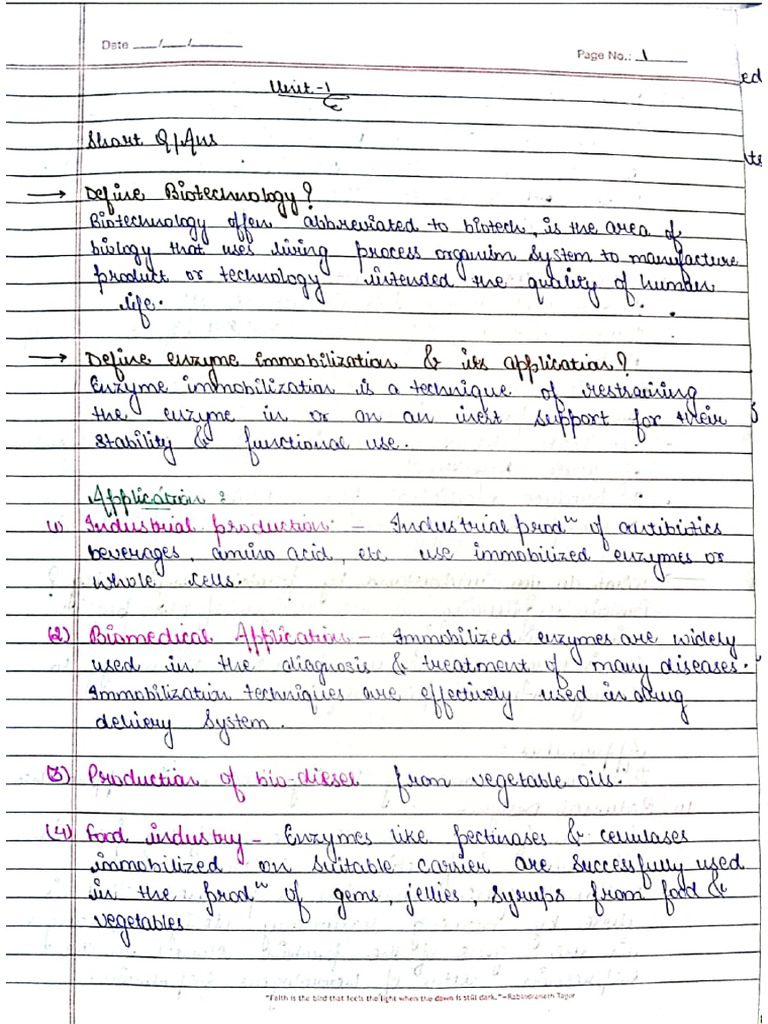 Date ___/___/______
Page No.: 1
Unit-1
Short Q/Ans
→ Define Biotechnology?
Biotechnology often abbreviated to biotech, is the area of
biology that uses living process organism system to manufacture
product or technology intended the quality of human
life.
→ Define enzyme immobilization & its application?
Enzyme immobilization is a technique of restraining
the enzyme in or on an inert support for their
stability & functional use.
Application :
(1) Industrial production: - Industrial prodⁿ of antibiotics
beverages, amino acid, etc use immobilized enzymes or
whole cells.
(2) Biomedical Application - Immobilized enzymes are widely
used in the diagnosis & treatment of many diseases.
Immobilization techniques are effectively used in drug
delivery system.
(3) Production of bio-diesel from vegetable oils.
(4) Food industry - Enzymes like pectinases & cellulases
immobilized on suitable carrier are successfully used
in the prodⁿ of gems, jellies, syrups from food &
vegetables
"Faith is the bird that feels the light when the dawn is still dark."-Rabindraneth Tagor